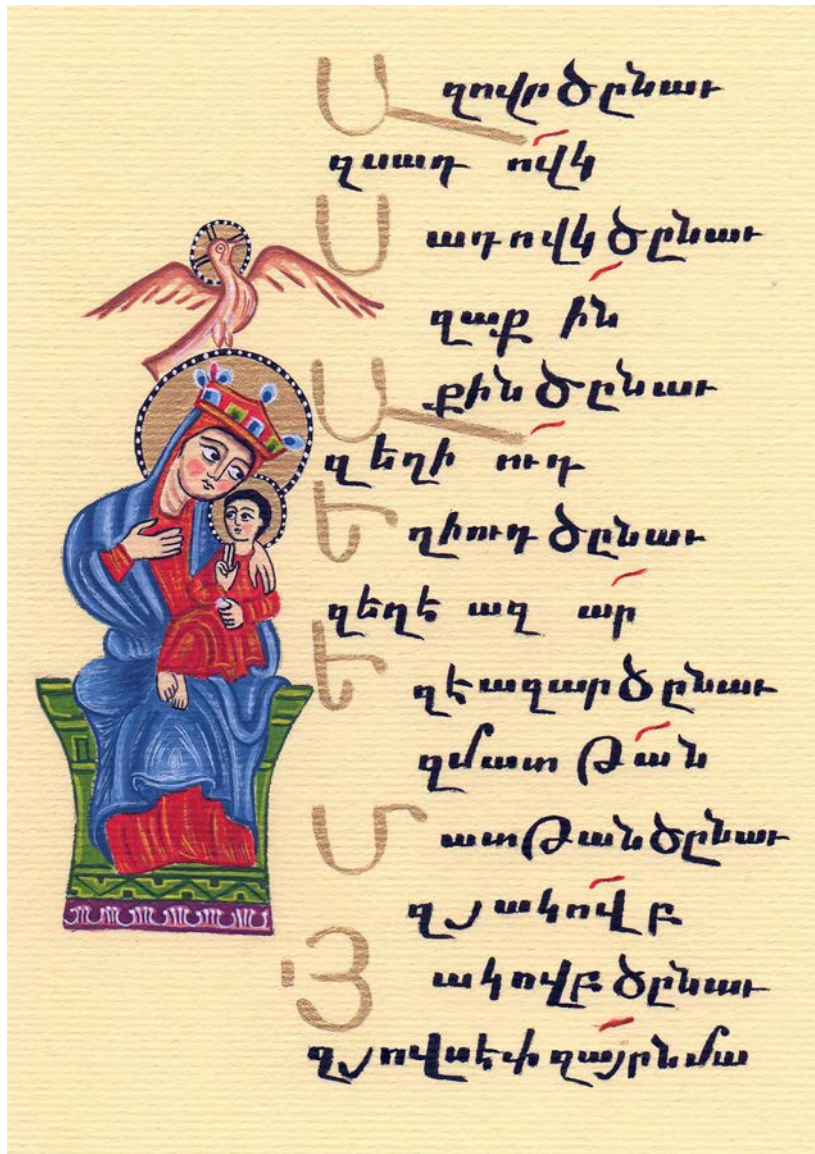 Ազովր ծընաւ
զսադովկ
Սադովկ ծընաւ
զաքին
Աքին ծընաւ
զեղիուդ
Եղիուդ ծընաւ
զեղէազար
Եղէազար ծընաւ
զմատթան
Մատթան ծընաւ
զյակովբ
Յակովբ ծընաւ
զյովսէփ զայրն մա